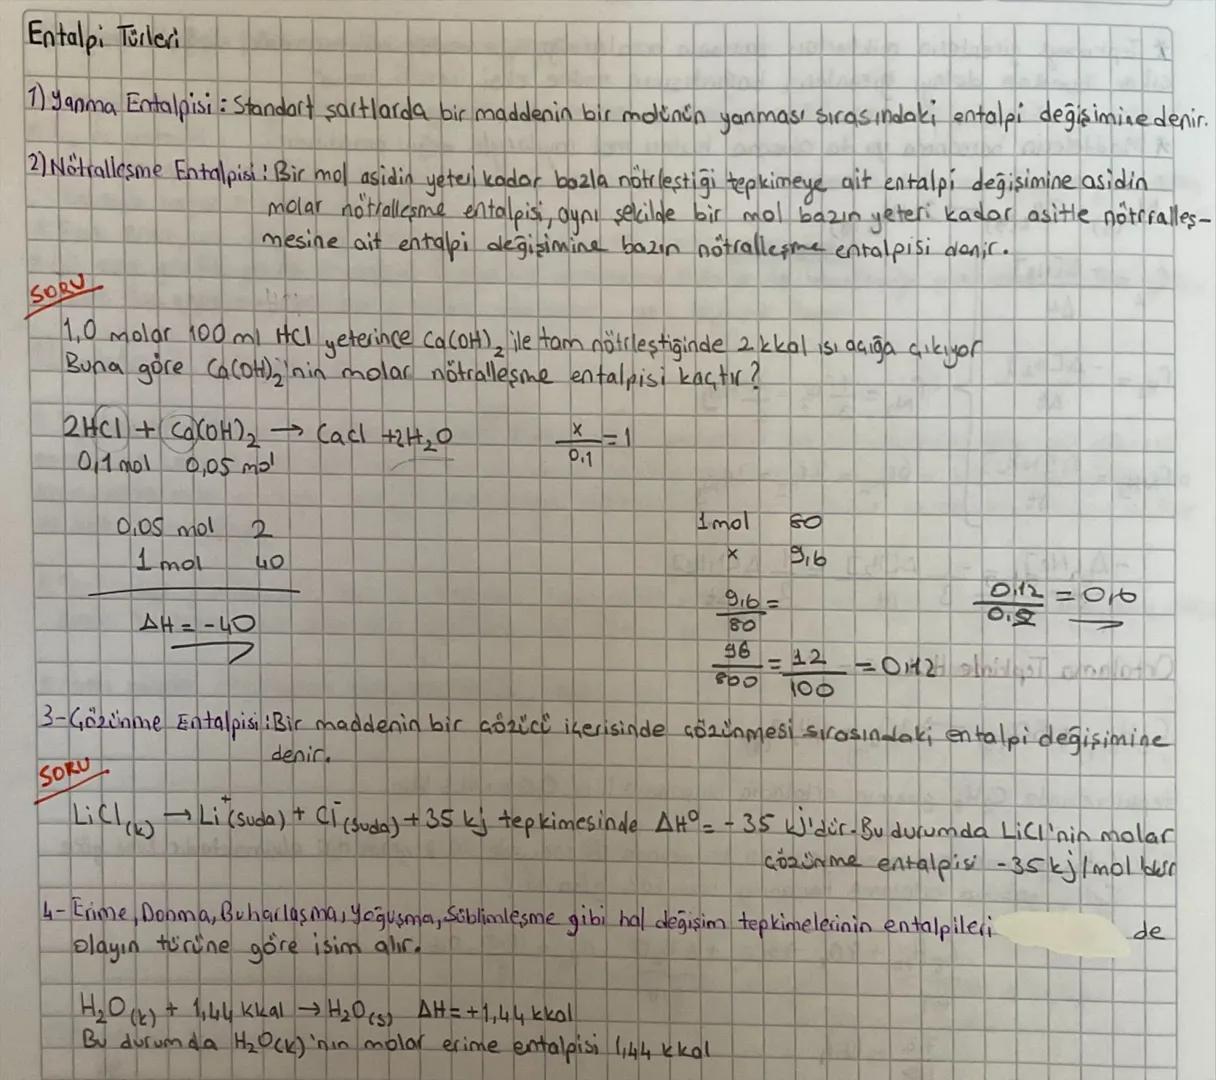 Entalpi Türleri
1) Yanma Entalpisi : Standart şartlarda bir maddenin bir molünün yanması sırasındaki entalpi değişimine denir.
2) Nötralleşme Entalpisi : Bir mol asidin yeteri kadar bazla nötrleştiği tepkimeye ait entalpi değişimine asidin
molar nötralleşme entalpisi, aynı şekilde bir mol bazın yeteri kadar asitle nötrralleş-
mesine ait entalpi değişimine bazın nötralleşme entalpisi denir.
SORU
1,0 molar 100 ml HCl yeterince Ca(OH)₂ ile tam nötrleştiğinde 2 kkal ısı açığa çıkıyor
Buna göre Ca(OH)₂'nin molar nötralleşme entalpisi kaçtır?
2HCl + Ca(OH)₂ → CaCl + 2H₂O
x/0,1 = 1
0,1 mol 0,05 mol
0,05 mol 2
1 mol 40
ΔH = -40
1 mol 80
x 9,6
9,6/80 =
96/800 = 12/100 = 0,12
0,12/0,2 = 0,6
3-Çözünme Entalpisi : Bir maddenin bir çözücü içerisinde çözünmesi sırasındaki entalpi değişimine
denir.
SORU
LiCl(k) → Li⁺(suda) + Cl⁻(suda) + 35 kj tepkimesinde ΔH° = -35 kj'dür. Bu durumda LiCl'nin molar
çözünme entalpisi -35 kj/mol'dür
4- Erime, Donma, Buharlaşma, Yoğuşma, Süblimleşme gibi hal değişim tepkimelerinin entalpileri de
olayın türüne göre isim alır.
H₂O(k) + 1,44 kkal → H₂O(s) ΔH = +1,44 kkal
Bu durumda H₂O(k)'nın molar erime entalpisi 1,44 kkal